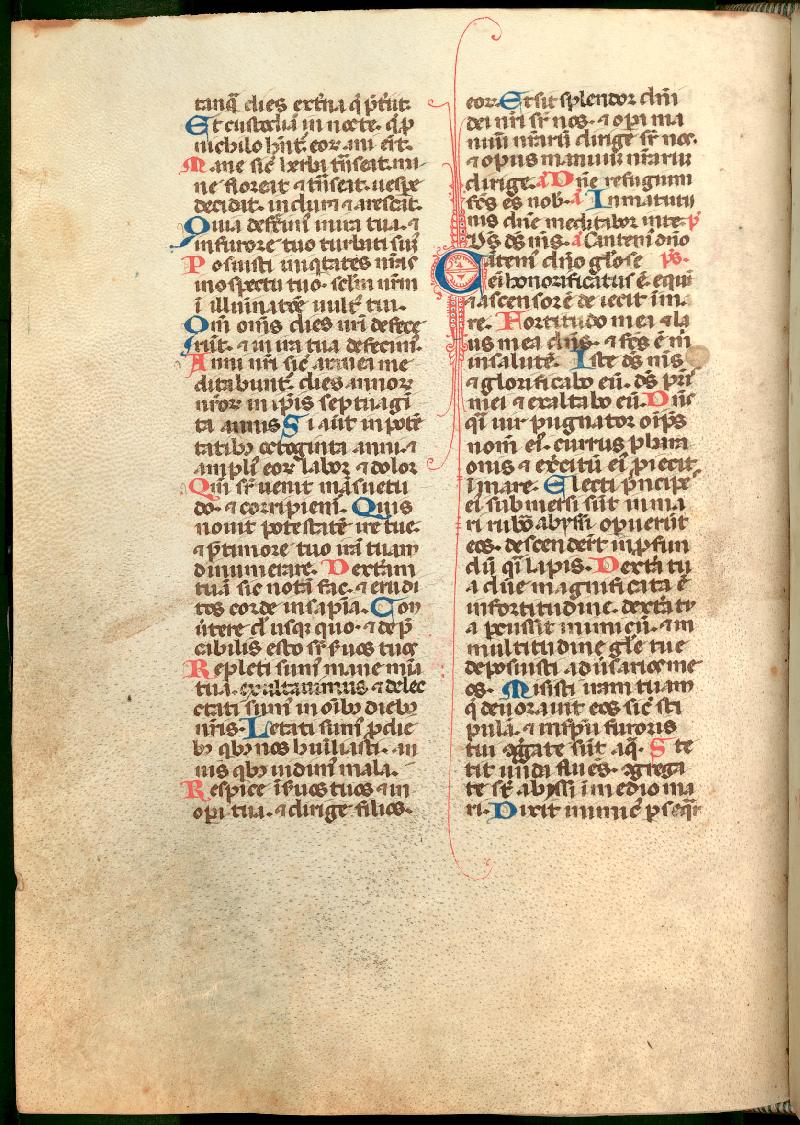 tanq̄ dies ext̄na q̄ p̄t̄iit.
Et custodia in nocte. q̄ p̄
nichilo hn̄t. eoꝝ ani ēt.
Mane sic̄ herba t̄nseat. ma
ne floreat ⁊ t̄nseat. uespe
decidat. induret ⁊ arescat.
Quia defecim̄ in ira tua. ⁊
in furore tuo turbati sum̄
Posuisti iniq̄tates nr̄as
in ꝯspectu tuo. sclm̄ nr̄m
ī illuminatōe uult̄ tui.
Qm̄ om̄s dies nr̄i defece
rūt. ⁊ in ira tua defecim̄.
Anni nr̄i sic̄ aranea me
ditabunt̄. dies annoꝝ
nr̄oꝝ in ip̄is septuagī
ta annis Si aūt in potē
tatibꝫ octoginta anni. ⁊
ampli᷒ eoꝝ labor ⁊ dolor
Qm̄ sr̄ uenit māsuetu
do. ⁊ corripiem̄. Quis
nouit potestatē ire tue.
⁊ p̄ timore tuo irā tuam
dinumerare. Dext̄am
tuā sic notā fac. ⁊ erudi
tos corde in sapīa. Con
ūtere dn̄e usq̄ quo. ⁊ dep̄
cabilis esto sr̄ s̄uos tuos
Repleti sum̄ mane mīa
tua. exultauimus ⁊ delec
ctati sum̄ in oībꝫ diebꝫ
nr̄is. Letati sum̄ ꝓ die
bꝫ qbꝫ nos humiliasti. an
nis qbꝫ uidim̄ mala.
Respice ī s̄uos tuos ⁊ in
opa tua. ⁊ dirige filios.
eoꝝ. Et sit splendor dn̄i
dei nr̄i sr̄ nos. ⁊ opa ma
nuū nr̄arū dirige sr̄ nos.
⁊ opus manuū nr̄arū
dirige. a Dn̄e refugium
fc̄s es nob. a In matuti
nis dn̄e meditabor in te. p̄
us ds̄ m̄s. a Cantem̄ dn̄o
Cātem̄ dn̄o gl̄ose ps.
ei᷒ honorificatus ē. equū
⁊ ascensorē deiecit ī ma
re. Fortitudo mea ⁊ la
us mea dn̄s. ⁊ fc̄s ē m̄
in salutē. Iste ds̄ m̄s
⁊ glorificabo eū. ds̄ pr̄is
mei ⁊ exaltabo eū. Dn̄s
q̄i uir pugnator oīps̄
nom̄ ei᷒. currus phara
onis ⁊ ex̄citū ei᷒ ꝓiecit
ī mare. Electi p̄ncipes
ei᷒ submersi sūt in ma
ri rubro abyssi opuerūt
eos. descenderūt in ꝓfun
dū q̄i lapis. Dext̄a tu
a dn̄e magnificata ē
in fortitudine. dext̄a tu
a ꝑcussit inimicū. ⁊ in
multitudine gl̄e tue
deposuisti adūsarios me
os. Misisti iram tuam
q̄ deuorauit eos sic̄ sti
pulā. ⁊ in sp̄u furoris
tui ꝯgregate sūt aq̄. Ste
tit unda flues. ꝯgrega
te sr̄ abyssi ī medio ma
ri. Dixit inimic᷒ ꝑseq̄r